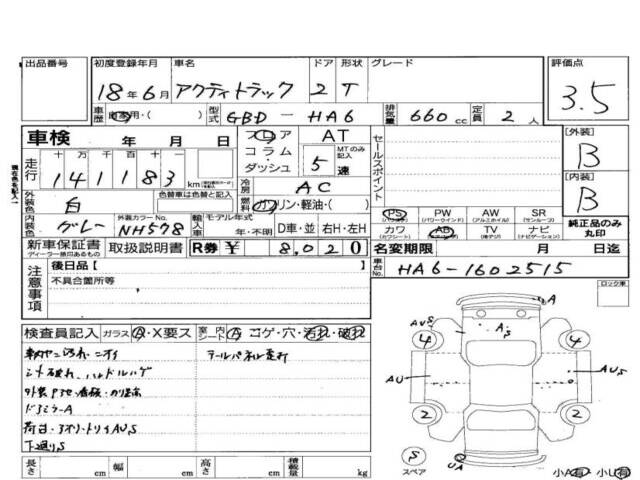 出品番号
初度登録年月 車名 ドア 形状 グレード 評価点
18年6月 アクティトラック 2 T 3.5
車歴 自家用・( ) 型式 GBD-HA6 排気量 660cc 定員 2人
車検 年 月 日 フロア コラム・ダッシュ AT 5速 MTのみ記入
セールスポイント
[外装] B
走行 十 万 千 百 十 一
141183km
冷房 AC
[内装] B
外装色 白 色替車は色替と記入 燃料 ガソリン・軽油・( )
内装色 グレー 外装カラーNo. NH578 輸入車 モデル年式 年・不明 D車・並 右H・左H
PS PW AW SR
(パワステ) (パワーウインド) (アルミホイル) (サンルーフ)
カワ AB TV ナビ
(カワシート) (エアバッグ) (地デジ) (ナビゲーション)
純正品のみ丸印
新車保証書 取扱説明書 R券 ¥8,020
ディーラー捺印あるもの
名変期限 月 日迄
車台No. HA6-1602515
注意事項 後日品[ ]
不具合箇所等
ロック車
検査員記入 ガラス A・X要ス 室内 シート A コゲ・穴・汚れ・破れ
車内ヤニ汚れ・ニオイ テールパネル歪行
シート破れ、ハンドルハゲ
ドアミラーA
荷台・アオリ・トリイAU,S
下廻りS
A
AU,S A,S
4 4
AU AU,S
2 2
S
スペア
UA
小A有 小U有
長さ cm 幅 cm 高さ cm 積載量 kg
現在色を記入